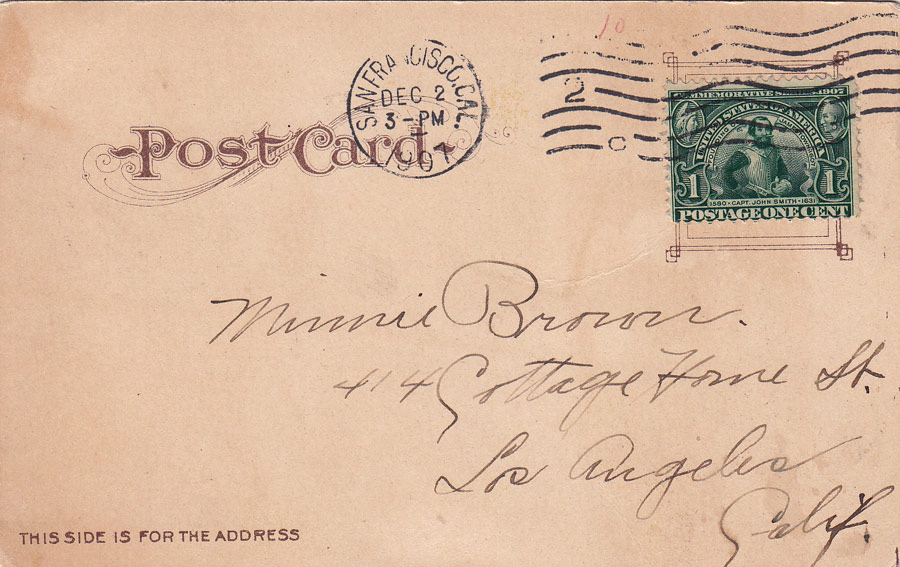 10
SAN FRANCISCO, CAL.
DEC 2
3-PM
1907
2
C
Post Card
COMMEMORATIVE SERIES 1907
UNITED STATES OF AMERICA
FOUNDING OF JAMESTOWN
1 1
1580 · CAPT. JOHN SMITH · 1631
POSTAGE ONE CENT
Minnie Brown.
414 Cottage Home St.
Los Angeles
Calif.
THIS SIDE IS FOR THE ADDRESS